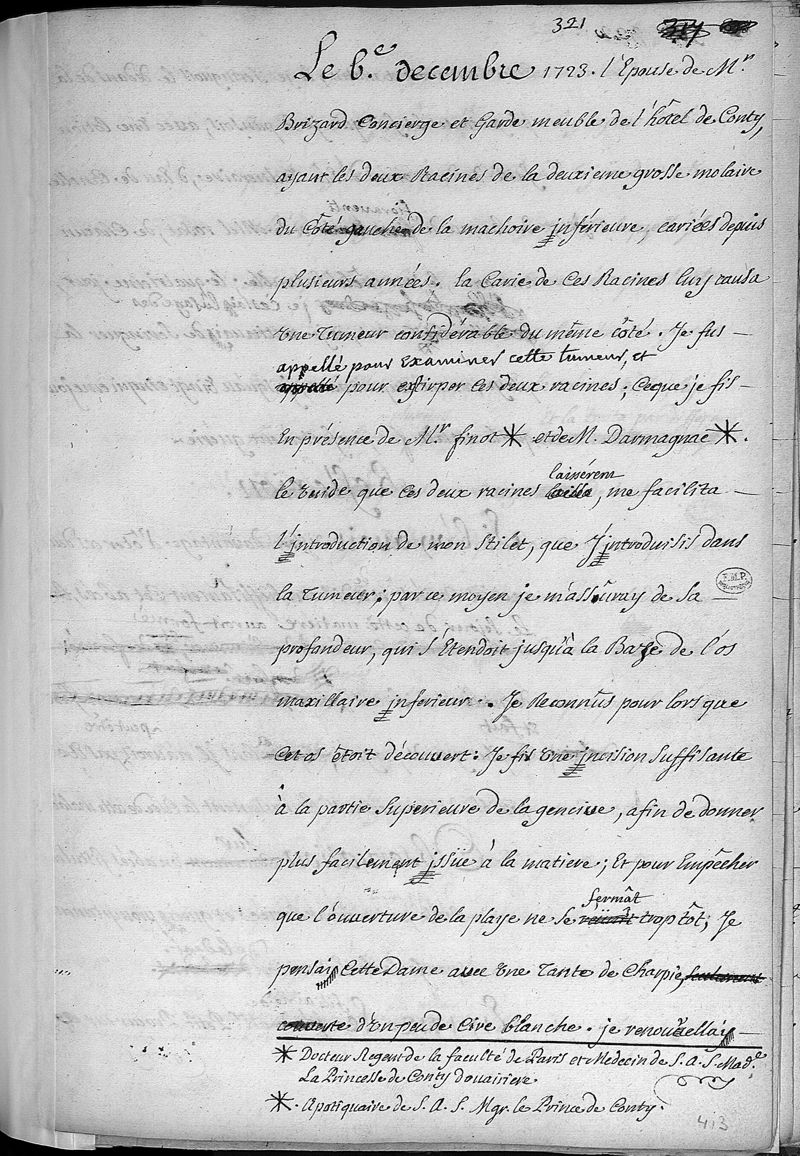 321
Le 6.e decembre 1723. l'Epouse de Mr.
Brizard Concierge et Garde meuble de l'hôtel de Conty,
ayant les deux Racines de la deuxieme grosse molaire
du Côté gauche de la machoire jnférieure, cariées depuis
plusieurs années. la Carie de Ces Racines luy causa
Une Tumeur considérable du même côté. Je fus
appellé pour Examiner cette tumeur, et
appellé pour extirper ces deux racines; Ceque je fis
En présence de Mr. finot * et de M. Darmagnac *.
laissérent
le vuide que ces deux racines , me facilita
l'jntroduction de mon Stilet, que J'jntroduisis dans
la Tumeur; par ce moyen je m'assuray de sa
F.M.P.
profondeur, qui s'Etendoit jusqu'à la Baze de l'os
maxillaire jnferieur. Je Reconnus pour lors que
Cet os êtoit découvert: Je fis Une jncision suffisante
à la partie Superieure de la gencive, afin de donner
plus facilement jssüe à la matiere; Et pour Empêcher
fermât
que l'ouverture de la playe ne se trop tôt; Je
pensai Cette Dame avec Une Tante de Charpie, seulement
couverte d'Un peu de Cire blanche. je renouvellai
* Docteur Regent de la faculté de Paris et Medecin de S. A. S. Made.
La Princesse de Conty douairiere
* . Apotiquaire de S. A. S. Mgr. le Prince de Conty.
413